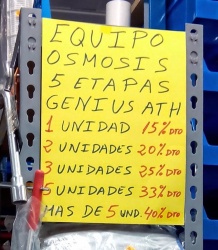 EQUIPO
OSMOSIS
5 ETAPAS
GENIUS ATH
1 UNIDAD 15% DTO
2 UNIDADES 20% DTO
3 UNIDADES 25% DTO
5 UNIDADES 33% DTO
MAS DE 5 UND. 40% DTO